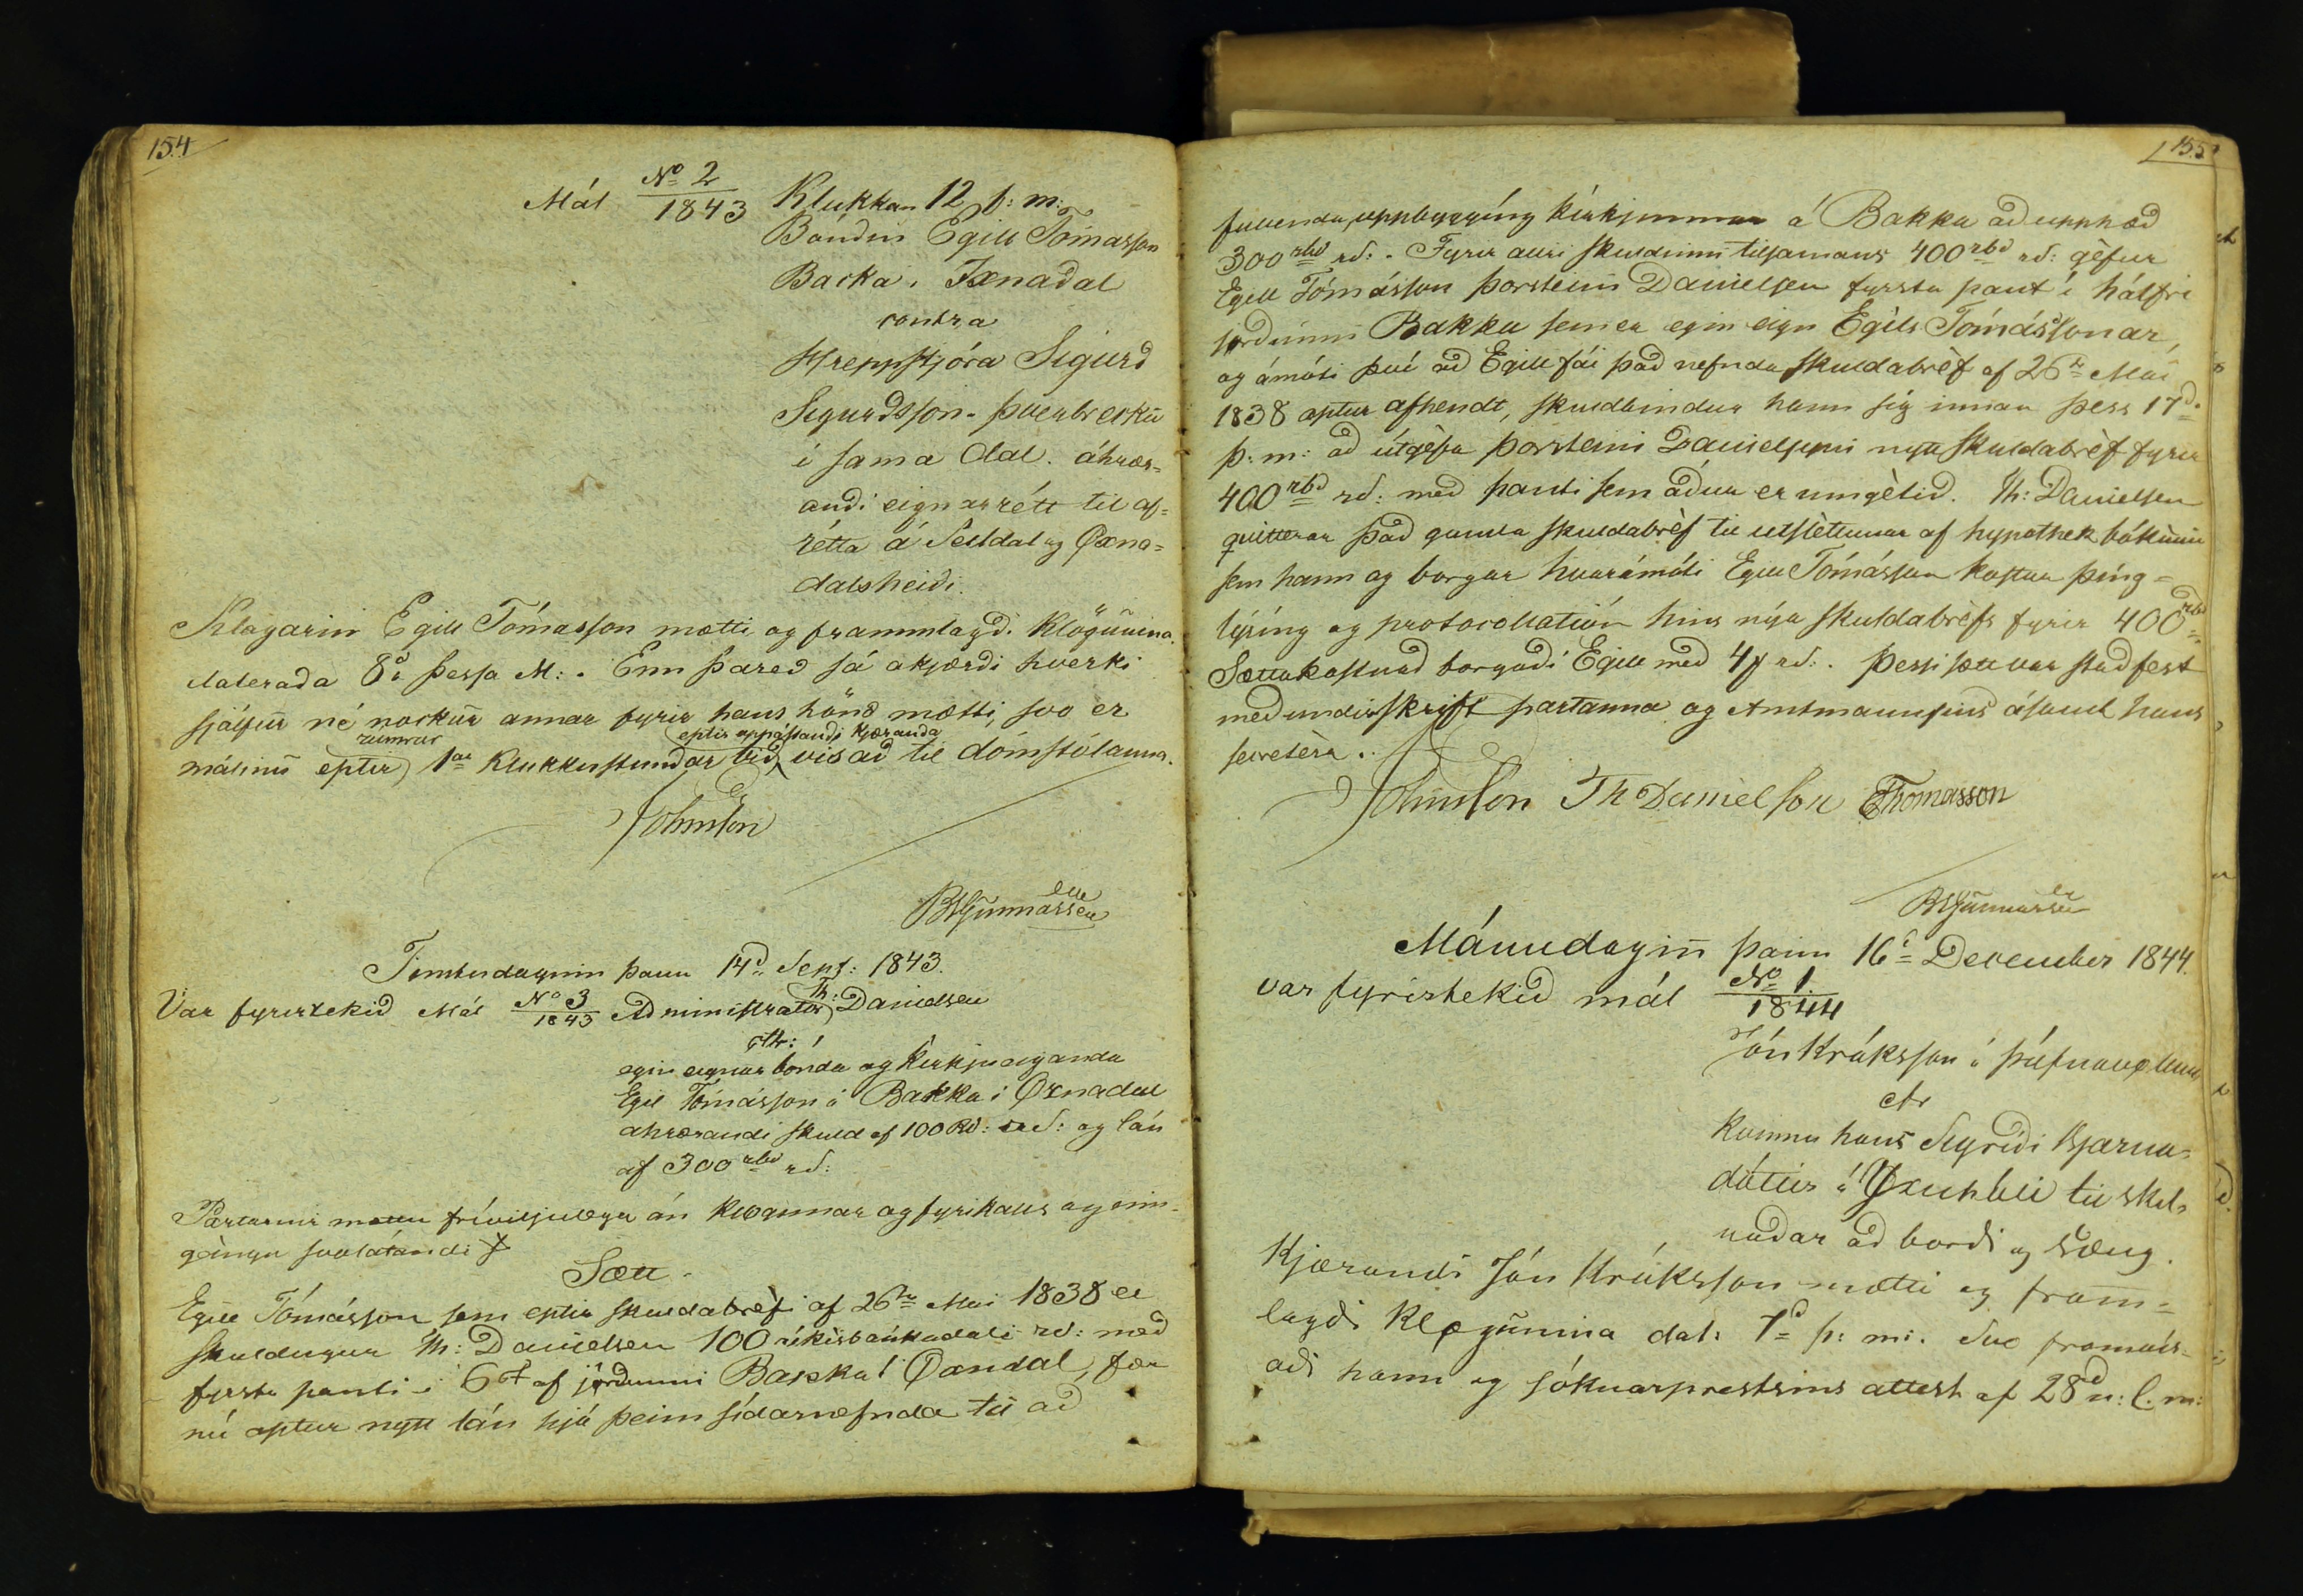 154
Mál No 2/1843 Klukkan 12 f: m:
Bóndin Egill Tómasson
Backa í Øxnadal
contra
Hreppstjóra Sigurd
Sigurdsson - Þverbrecku
í sama dal. áhrær-
andi eignarrétt til af-
rétta á Seldal og Øxna-
dalsheiði.
Klagarin Egill Tómasson mætti og frammlagði klögunina
daterada 8da þessa M:. Enn þared sá ákjærði hverki
sjálfur né nockur annar fyrir hans hönd mætti, svo er
rúmrar eptir uppástandi kjæranda
málinu eptir 1ar klukkustundar bið visað til dómstólanna.
Johnson
BSGunnarssen
Fimtudaginn þann 14d Sept: 1843.
Var fyrirtekið Mál No 3/1843 Administrator Th: Danielsen
ctr:
egin eignar bónda og kirkjueiganda
Egil Tómásson á Bakka í Øxnadal
ahrærandi skuld af 100 Rd: r.S: og lán
af 300 rbd rS:
Partarnir mættu fríviljuglega án klögunnar og fyrikalls og inn-
géingu svolátandi
Sætt.
Egill Tómásson sem eptir skuldabréfi af 26ta Mai 1838 er
skuldugur Th: Danielsen 100 ríkisbánkadali rS: með
fyrsta panti í 6 # af jørdunni Bakka í Øxndal, fær
nú aptur nýtt lán hjá þeim sídarnefnda til að
155
fuuenda, uppbyggíng kirkjunnar á Bakka að upphæð
300 rbd rS:. Fyrir allri skuldinni tilsamans 400 rbd rS: géfur
Egill Tómásson Þorsteini Danielsen fyrsta pant í hálfri
jørdunni Bakka sem er egin eign Egils Tómássonar,
og ámóti því að Egill fái það nefnda skuldabréf af 26ta Mai
1838 aptur afhendt, skuldbindur hann sig innan þess 17d.
þ: m: að útgéfa Þorsteini Danielssyni nýtt skuldabréf fyrir
400 rbd rS: með panti sem áður er umgétið. Th: Danielsen
quitterar það gamla skuldabréf til utsléttunar af hypothek bókinni
sem hann og borgar hvarámóti Egill Tómásson kostar þíng-
lýsíng og protocollatión hins nýa skuldabréfs fyrir 400 rbd
Sættakostnað borgaði Egill með 4 rS:. Þessi sætt var staðfest
með undirskrift partanna og Amtmannsins ásamt hans
secretéra.
Johnson Th Danielson EThomasson
BSGunnarssen
Mánudagin þann 16d December 1844.
var fyrirtekið mál No 1/1844
Jón Kráksson á Þúfnavøllum
ctr
kvinnu hans Sigriði Bjarna-
dóttir á Øxnhóli til skil-
naðar að borði og sæng.
Kjærandi Jón Kráksson mætti og fram-
lagði Kløgunina dat: 7d þ: m:. Svo framvís-
aði hann og sóknarprestsins attest af 28d n: l. m: